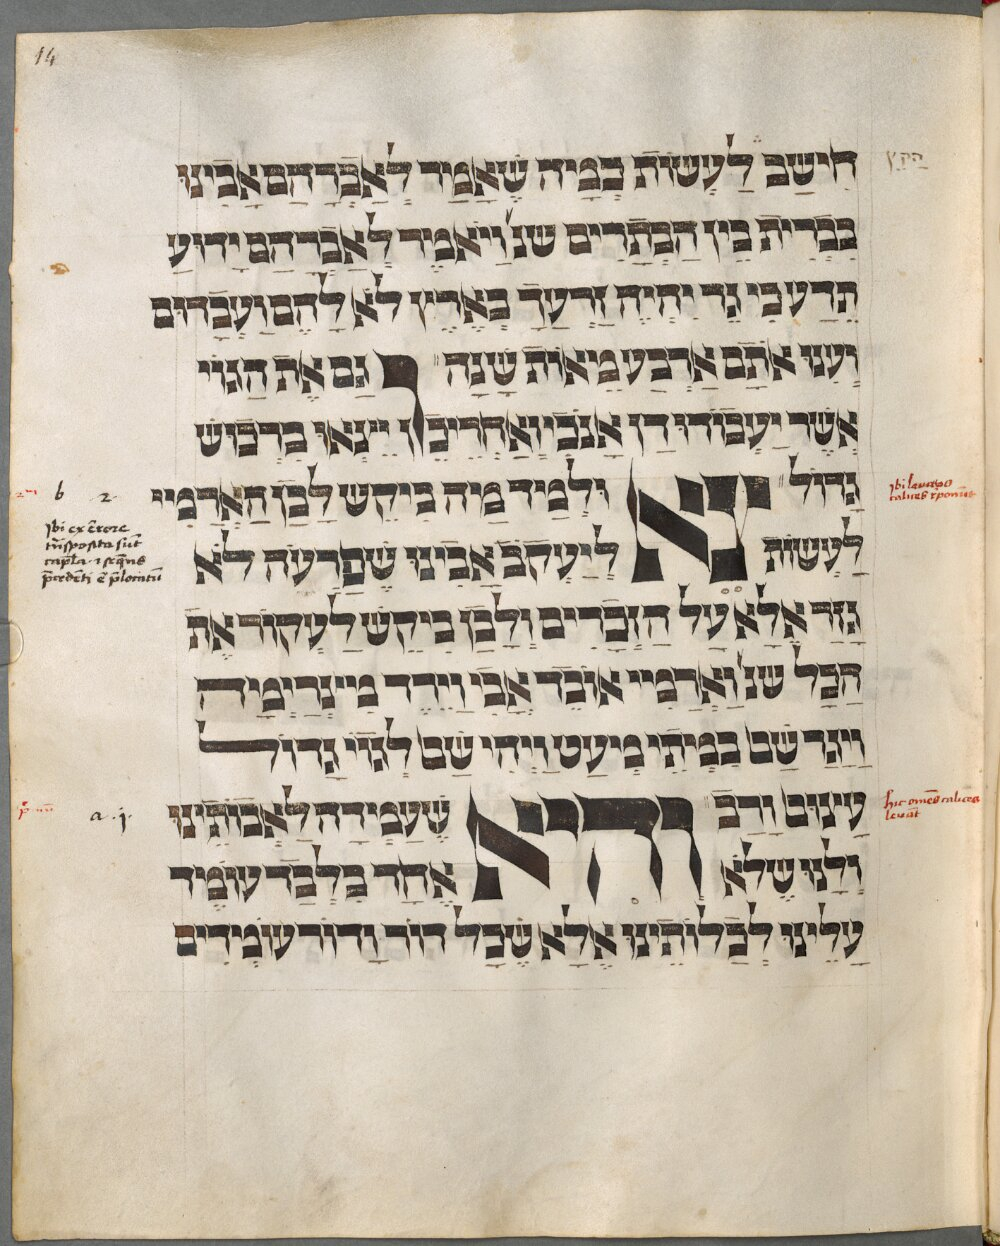 14
הקץ
חישב לעשות כמיה שאמר לאברהם אבינו
בברית בין הבתרים שנ׳ ויאמר לאברהם ידוע
תדע כי גר יהיה זרעך בארץ לא להם ועבדום
וענו אתם ארבע מאות שנה וגם את הגוי
אשר יעבודו דן אנכי ואחרי כן יצאו ברכוש
גדול צא ולמיד מיה ביקש לבן הארמיי
לעשות ליעקב אבינו שפרעה לא
גזר אלא על הזכרים ולבן ביקש לעקור את
הכל שנ׳ וארמיי אובד אבי וירד מיצרימיה
ויגר שם במיתי מיעט ויהי שם לגוי גדול
עצום ורב והיא שעמידה לאבותינו
ולנו שלא אחד בלבד עומיד
עלינו לכלותינו אלא שבכל דור ודור עומדים
b 2
ibi ex errore
a i
hic omes calices
levāt